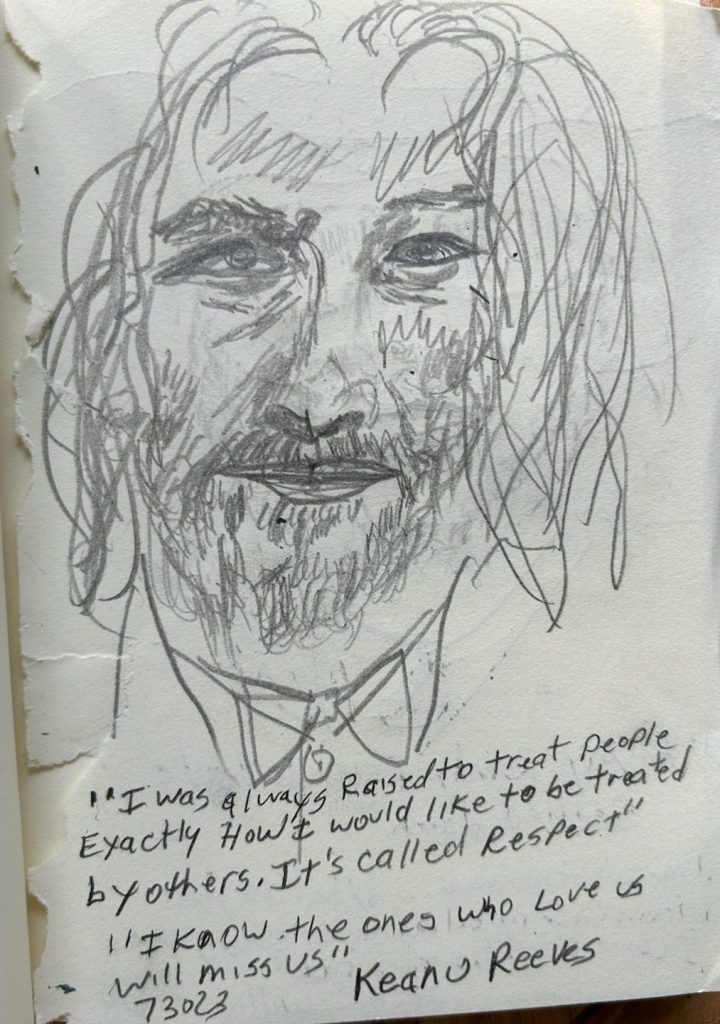 "I was always Raised to treat people
Exactly How I would like to be treated
by others. It's called Respect"
"I know the ones who Love us
will miss us" Keanu Reeves
73023